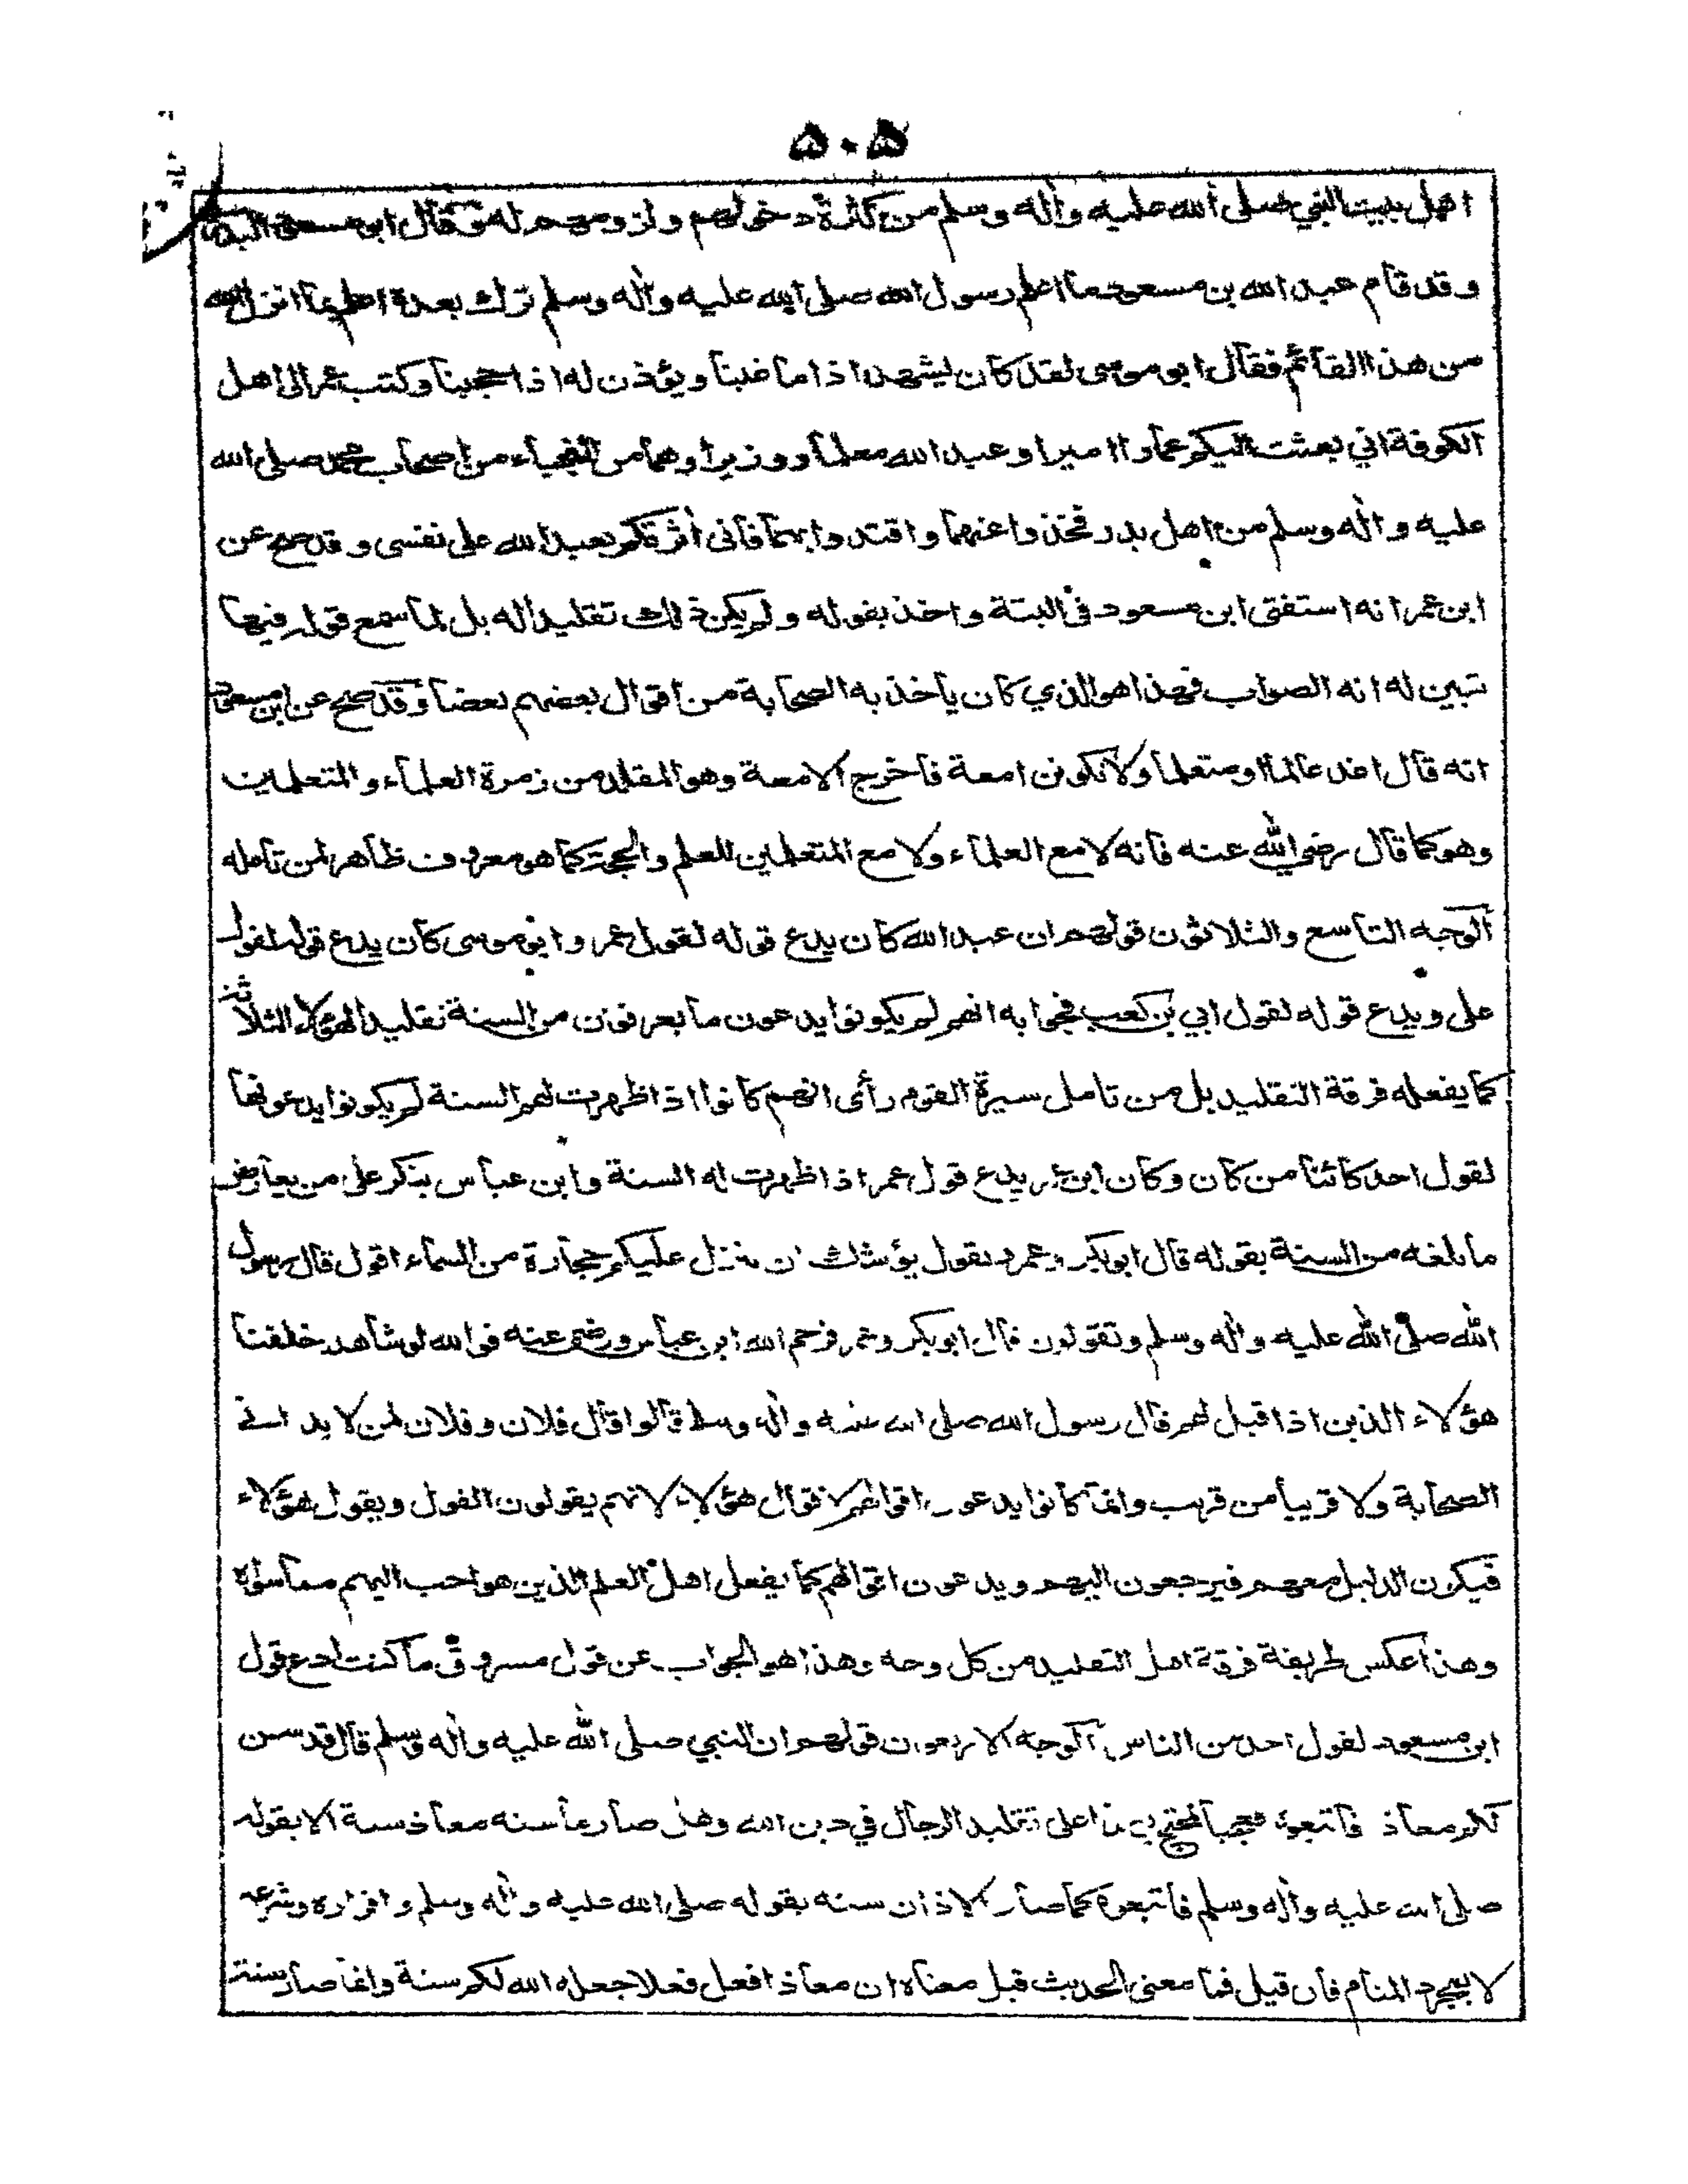 ٥٠٥
اهل بيت النبي صلى الله عليه وأله وسلم من كثرة دخولهم ولزومهم له وقال ابو مسعود البدري
وقد قام عبد الله بن مسعود ما اعلم رسول الله صلى الله عليه وأله وسلم ترك بعده اعلم بما انزل الله
من هذا القائم فقال ابو موسى لقد كان ليشهد اذا ما غبنا ويؤذن له اذا حجبنا وكتب عمر الى اهل
الكوفة اني بعثت اليكم عمارا اميرا وعبد الله معلما ووزيرا وهما من النجباء من اصحاب محمد صلى الله
عليه وأله وسلم من اهل بدر فخذوا عنهما واقتدوا بهما فاني أثرتكم بعبد الله على نفسي وقد صح عن
ابن عمر انه استفتى ابن مسعود في البتة واخذ بقوله ولم يكن ذلك تقليدا له بل لما سمع قوله فيها
تبين له انه الصواب فهذا هو الذي كان ياخذ به الصحابة من اقوال بعضهم بعضا وقد صح عن ابن مسعود
انه قال اغد عالما او متعلما ولا تكونن امعة فاخرج الامعة وهو المقلد من زمرة العلماء والمتعلمين
وهو كما قال رضي الله عنه فانه لا مع العلماء ولا مع المتعلمين للعلم والحجة كما هو معروف ظاهر لمن تامله
الوجه التاسع والثلاثون قولهم ان عبد الله كان يدع قوله لقول عمر وابو موسى كان يدع قوله لقول
علي ويدع قوله لقول ابي بن كعب فجوابه انهم لم يكونوا يدعون ما يعرفون من السنة تقليدا لهؤلاء الثلاثة
كما يفعله فرقة التقليد بل من تامل سيرة القوم رأى انهم كانوا اذا ظهرت لهم السنة لم يكونوا يدعونها
لقول احد كائنا من كان وكان ابن عمر يدع قول عمر اذا ظهرت له السنة وابن عباس ينكر على من يعارض
ما بلغه من السنة بقوله قال ابو بكر وعمر ويقول يوشك ان ينزل عليكم حجارة من السماء اقول قال رسول
الله صلى الله عليه وأله وسلم وتقولون قال ابو بكر وعمر فرحم الله ابن عباس ورضي عنه فوالله لو شاهد خلفنا
هؤلاء الذين اذا قيل لهم قال رسول الله صلى الله عليه وأله وسلم قالوا قال فلان وفلان لمن لا يداني
الصحابة ولا قريبا من قريب وانما كانوا يدعون اقوالهم لاقوال هؤلاء لانهم يقولون القول ويقول هؤلاء
فيكون الدليل معهم فيرجعون اليهم ويدعون اقوالهم كما يفعل اهل العلم الذين هو احب اليهم مما سواه
وهذا عكس طريقة فرقة اهل التقليد من كل وجه وهذا هو الجواب عن قول مسروق ما كنت ادع قول
ابن مسعود لقول احد من الناس الوجه الاربعون قولهم ان النبي صلى الله عليه وأله وسلم قال قد سن
لكم معاذ فاتبعوه فعجبا لمحتج بهذا على تقليد الرجال في دين الله وهل صار ما سنه معاذ سنة الا بقوله
صلى الله عليه وأله وسلم فاتبعوه كما صار الاذان سنه بقوله صلى الله عليه وأله وسلم واقراره وشرعه
لا بمجرد المنام فان قيل فما معنى الحديث قيل معناه ان معاذا فعل فعلا جعله الله لكم سنة وانما صار سنة